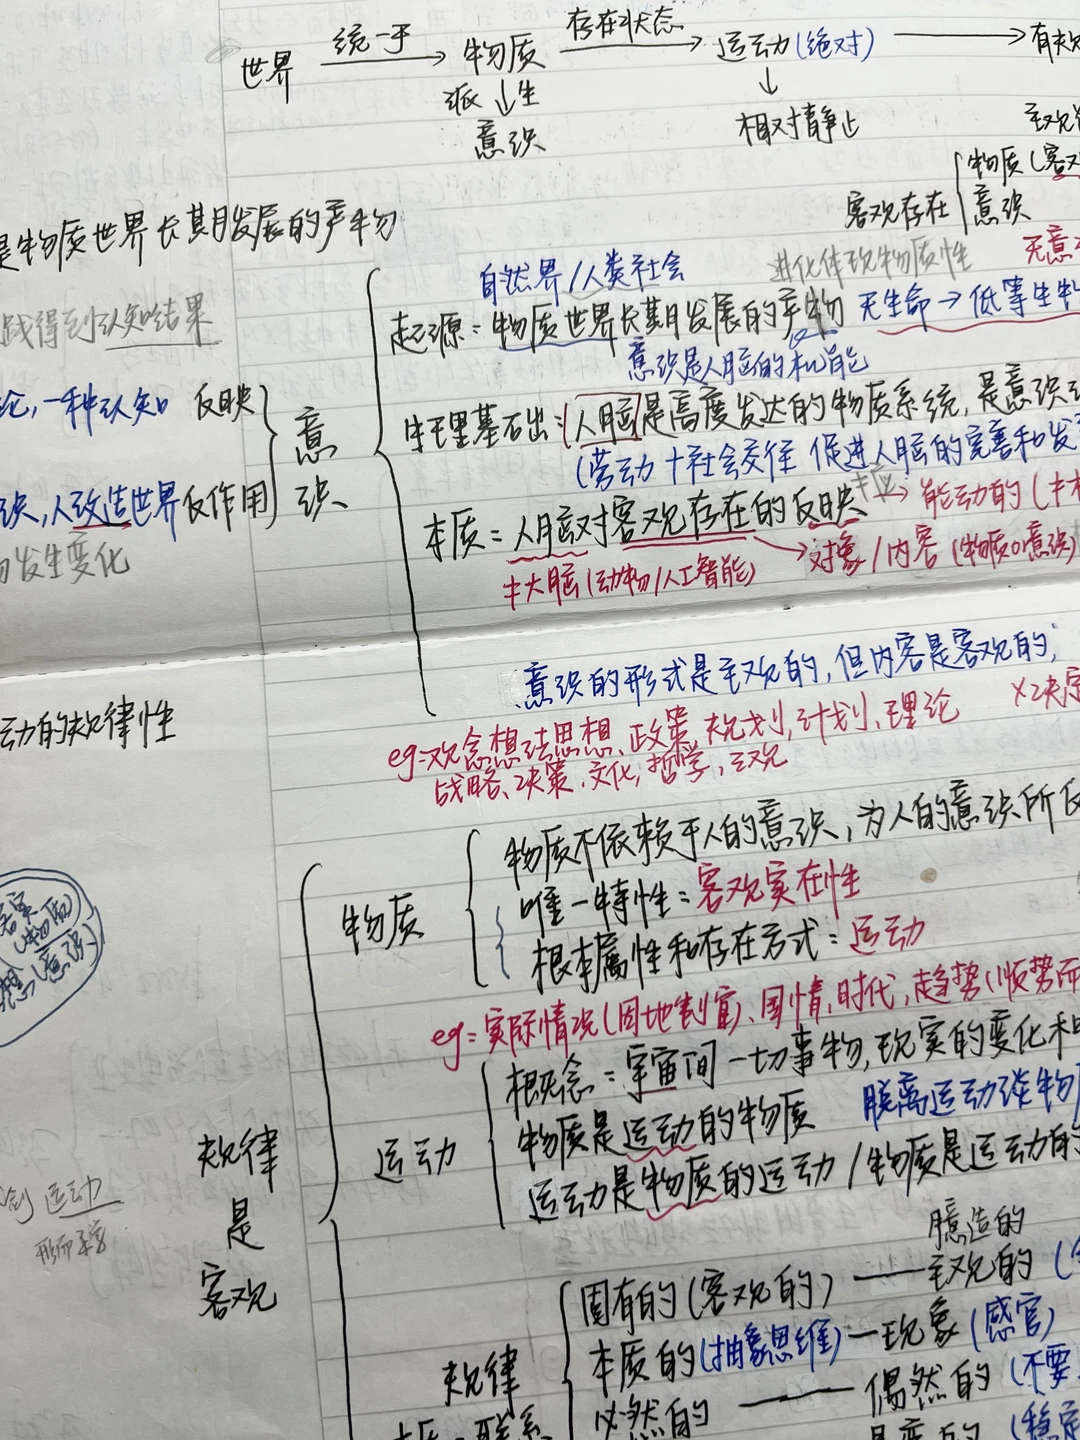 世界 统一于 物质 存在状态 运动(绝对) 有规
派生
意识
相对静止
主观
客观存在 物质(客观
意识
是物质世界长期发展的产物
自然界/人类社会 进化体现物质性 无意
践得到认知结果
起源:物质世界长期发展的产物 无生命→低等生物
意识是人脑的机能
论,一种认知 反映
意识
生理基础:人脑是高度发达的物质系统,是意识
(劳动+社会交往 促进人脑的完善和发
识,人改造世界 反作用
本质:人脑对客观存在的反映→能动的(
发生变化
≠大脑(动物/人工智能) 对象/内容(物质or意识)
意识的形式是主观的,但内容是客观的,
动的规律性
×决定
eg:观念想法思想、政策、规划,计划、理论
战略、决策、文化,哲学,主观
物质不依赖于人的意识,为人的意识所反
物质
唯一特性:客观实在性
根本属性和存在方式:运动
(物质)
(意识)
eg:实际情况(因地制宜)、国情,时代,趋势(顺势而
概念:宇宙间一切事物,现实的变化和
运动
物质是运动的物质 脱离运动谈物
运动是物质的运动/物质是运动的
规律是客观
运动
臆造的
固有的(客观的)——主观的(
本质的(抽象思维)—现象(感官)
规律
必然的——偶然的(不要
联系
的(稳定